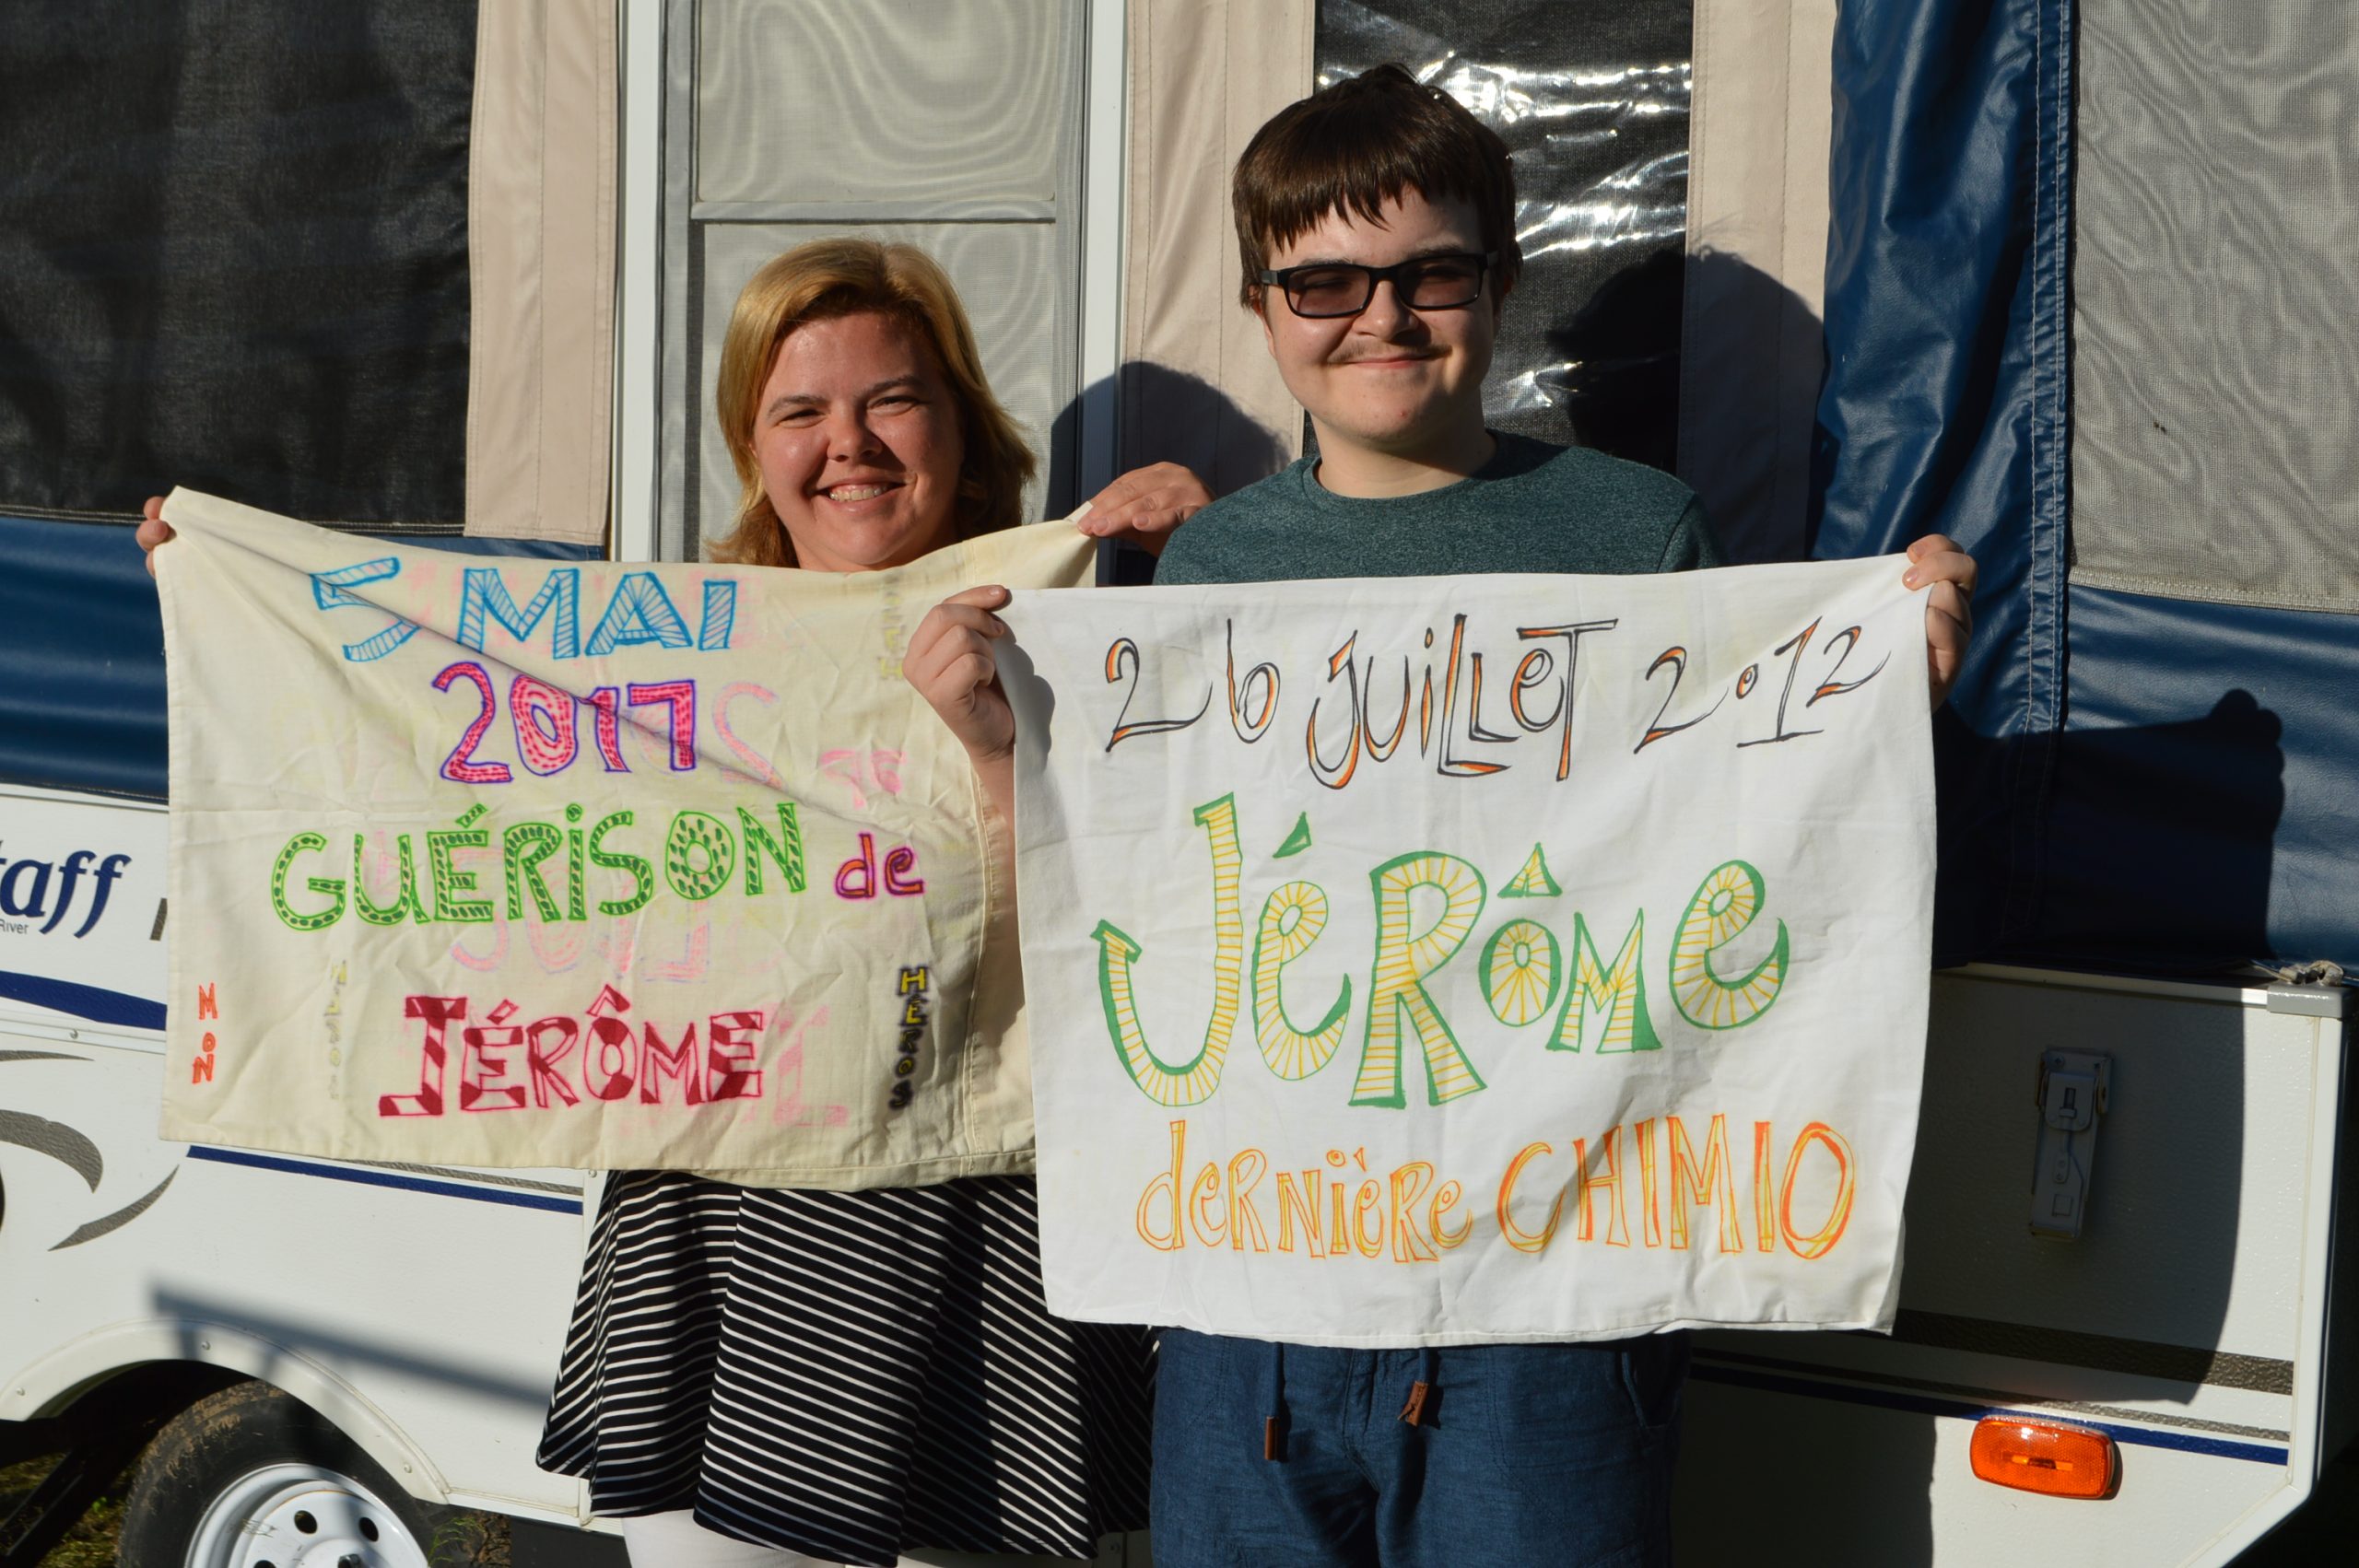 5 MAI
2017
GUÉRISON de
JÉRÔME
MON
HÉROS
26 juiLLeT 2012
JéRôMe
deRNièRe CHIMIO
taff
River